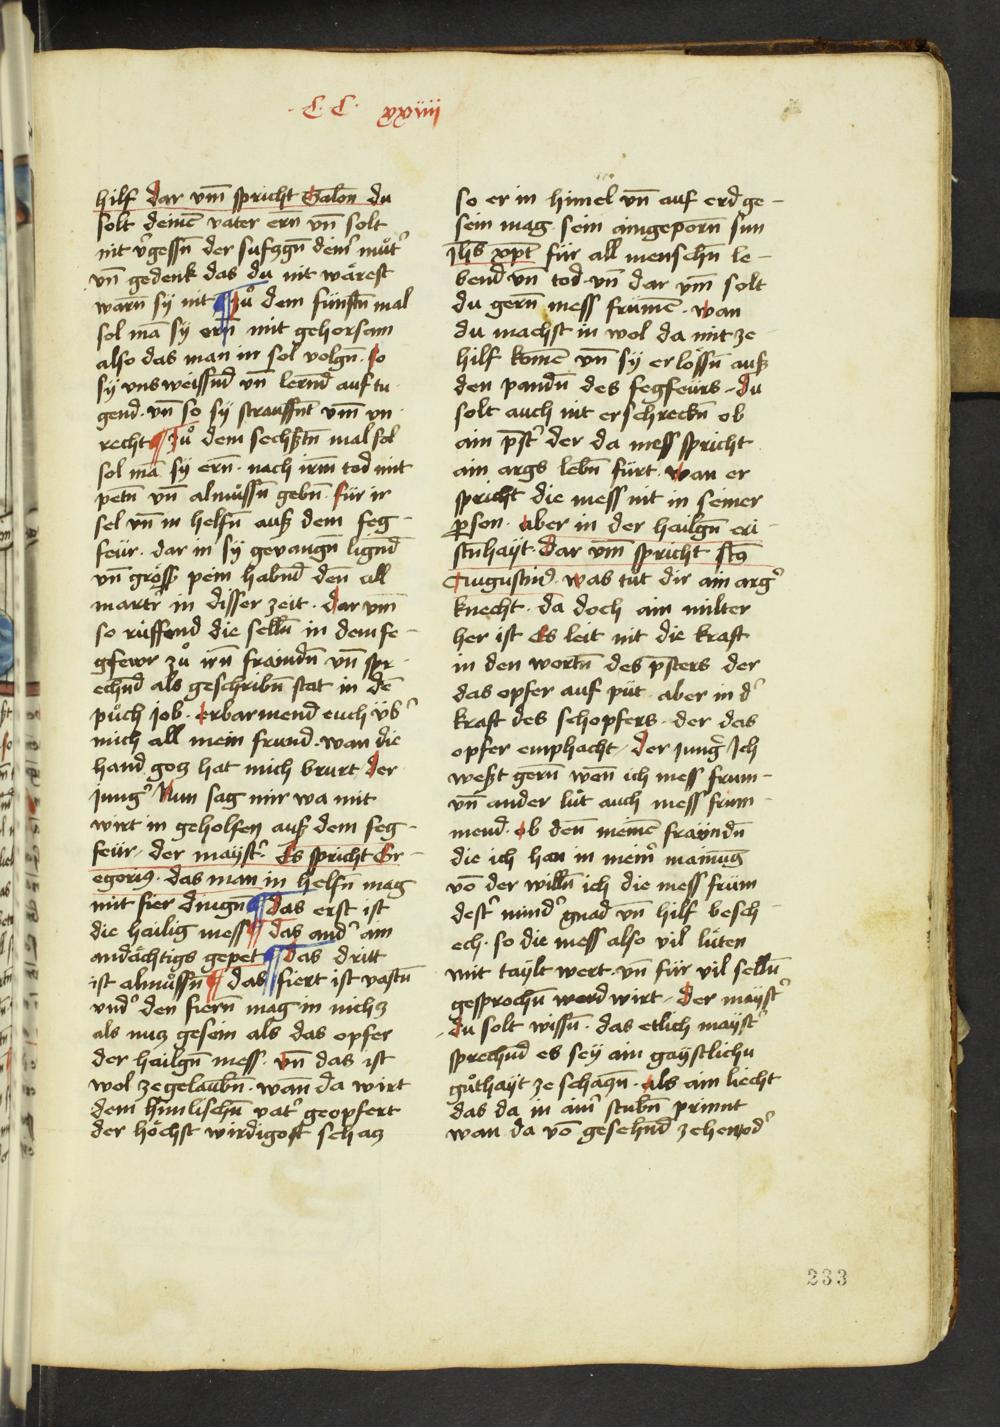 C. C. xxiiii
hilf dar vm̄ spricht Salon̄ du
solt deinē vater ern̄ vn̄ solt
nit v̓gessn̄ der sufzgn̄ dein̓ můt̓
vn̄ gedenk das du nit wärest
warn̄ sy nit ¶ Zů dem fünftn̄ mal
sol mā sy ern̄ mit gehorsam
also das man in sol volgn̄. so
sy vns weissnd vn̄ lernd auf tu
gend. vn̄ so sy strauffnt vm̄ vn
recht ¶ zů dem sechßtn̄ mal sol
sol mā sy ern̄. nach irm̄ tod mit
petn̄ vn̄ almůssn̄ gebn̄. für ir
sel vn̄ in helfn̄ auß dem feg-
feür. dar in sy gevangn̄ lignd̄
vn̄ gröss pein habnd̄ den̄ all
martr̓ in disser zeit. dar vm̄
so růffend die selln̄ in dem fe-
gfewr zů irn̄ fraindn̄ vn̄ spr-
echnd̄ als geschribn̄ stat in dē
půch job. erbarmend euch üb̓
mich all mein frund. wan die
hand gotz hat mich brurt. der
jung̓ Nun sag mir wa mit
wirt in geholfen auß dem feg-
feür. der mayst̓. Es spricht Gr-
egori9. das man in helfn̄ mag
mit fier dingn̄ ¶ das erst ist
die heilig mess ¶ das and̓ ain
andächtigs gepet ¶ das dritt
ist almůssn̄ ¶ das fiert ist vastn̄
vnd̓ den fiern̄ mag in nichtz
als nutz gesein als das opfer
der heilgn̄ mess. vn̄ das ist
wol ze gelaubn̄. wan̄ da wirt
dem himlischn̄ vat̓ geopfert
der höchst wirdigost schatz
so er in himel vn̄ auf erd ge-
sein mag. sein aingeporn̄ sun
Jhs xpt̄ für all menschn̄ le-
bend vn̄ tod. vn̄ dar vm̄ solt
du gern̄ mess frümē. wan
du machst in wol da mit ze
hilf komē vn̄ sy erlössn̄ auß
den pandn̄ des fegfeürs. du
solt auch nit erschreckn̄ ob
ain p̄st̓ der da mess spricht
ain args lebn̄ fürt. wan er
spricht die mess nit in seiner
person. aber in der hailgn̄ cri-
stn̄hayt. Dar vm̄ spricht sct̄9
Augustin9. was tůt dir ain arg̓
knecht. da doch ain milter
her ist Es leit nit die kraft
in den wortn̄ des p̄sters der
das opfer auf püt. aber in d̓
kraft des schopfers. der das
opfer emphacht. der jung̓ Ich
weßt gern̄ wen̄ ich mess frum-
vn̄ ander lüt auch mess frum-
mend. ob den̄ meinē fraÿndn̄
die ich han in mein̓ mainuḡ
vō der willn̄ ich die mess früm
dest̓ mind̓ gnad vn̄ hilf besch-
ech. so die mess also vil lüten
mit taylt wert. vn̄ für vil selln̄
gesprochn̄ wird. Der mayst̓
du solt wissn̄. das etlich mayst̓
sprechnd es sey ain gaystlichu
gůthayt ze schaczn̄. als ain liecht
das da in ain̓ stubn̄ prinnt
wan da vō gesehnd̄ zehen od̓
233